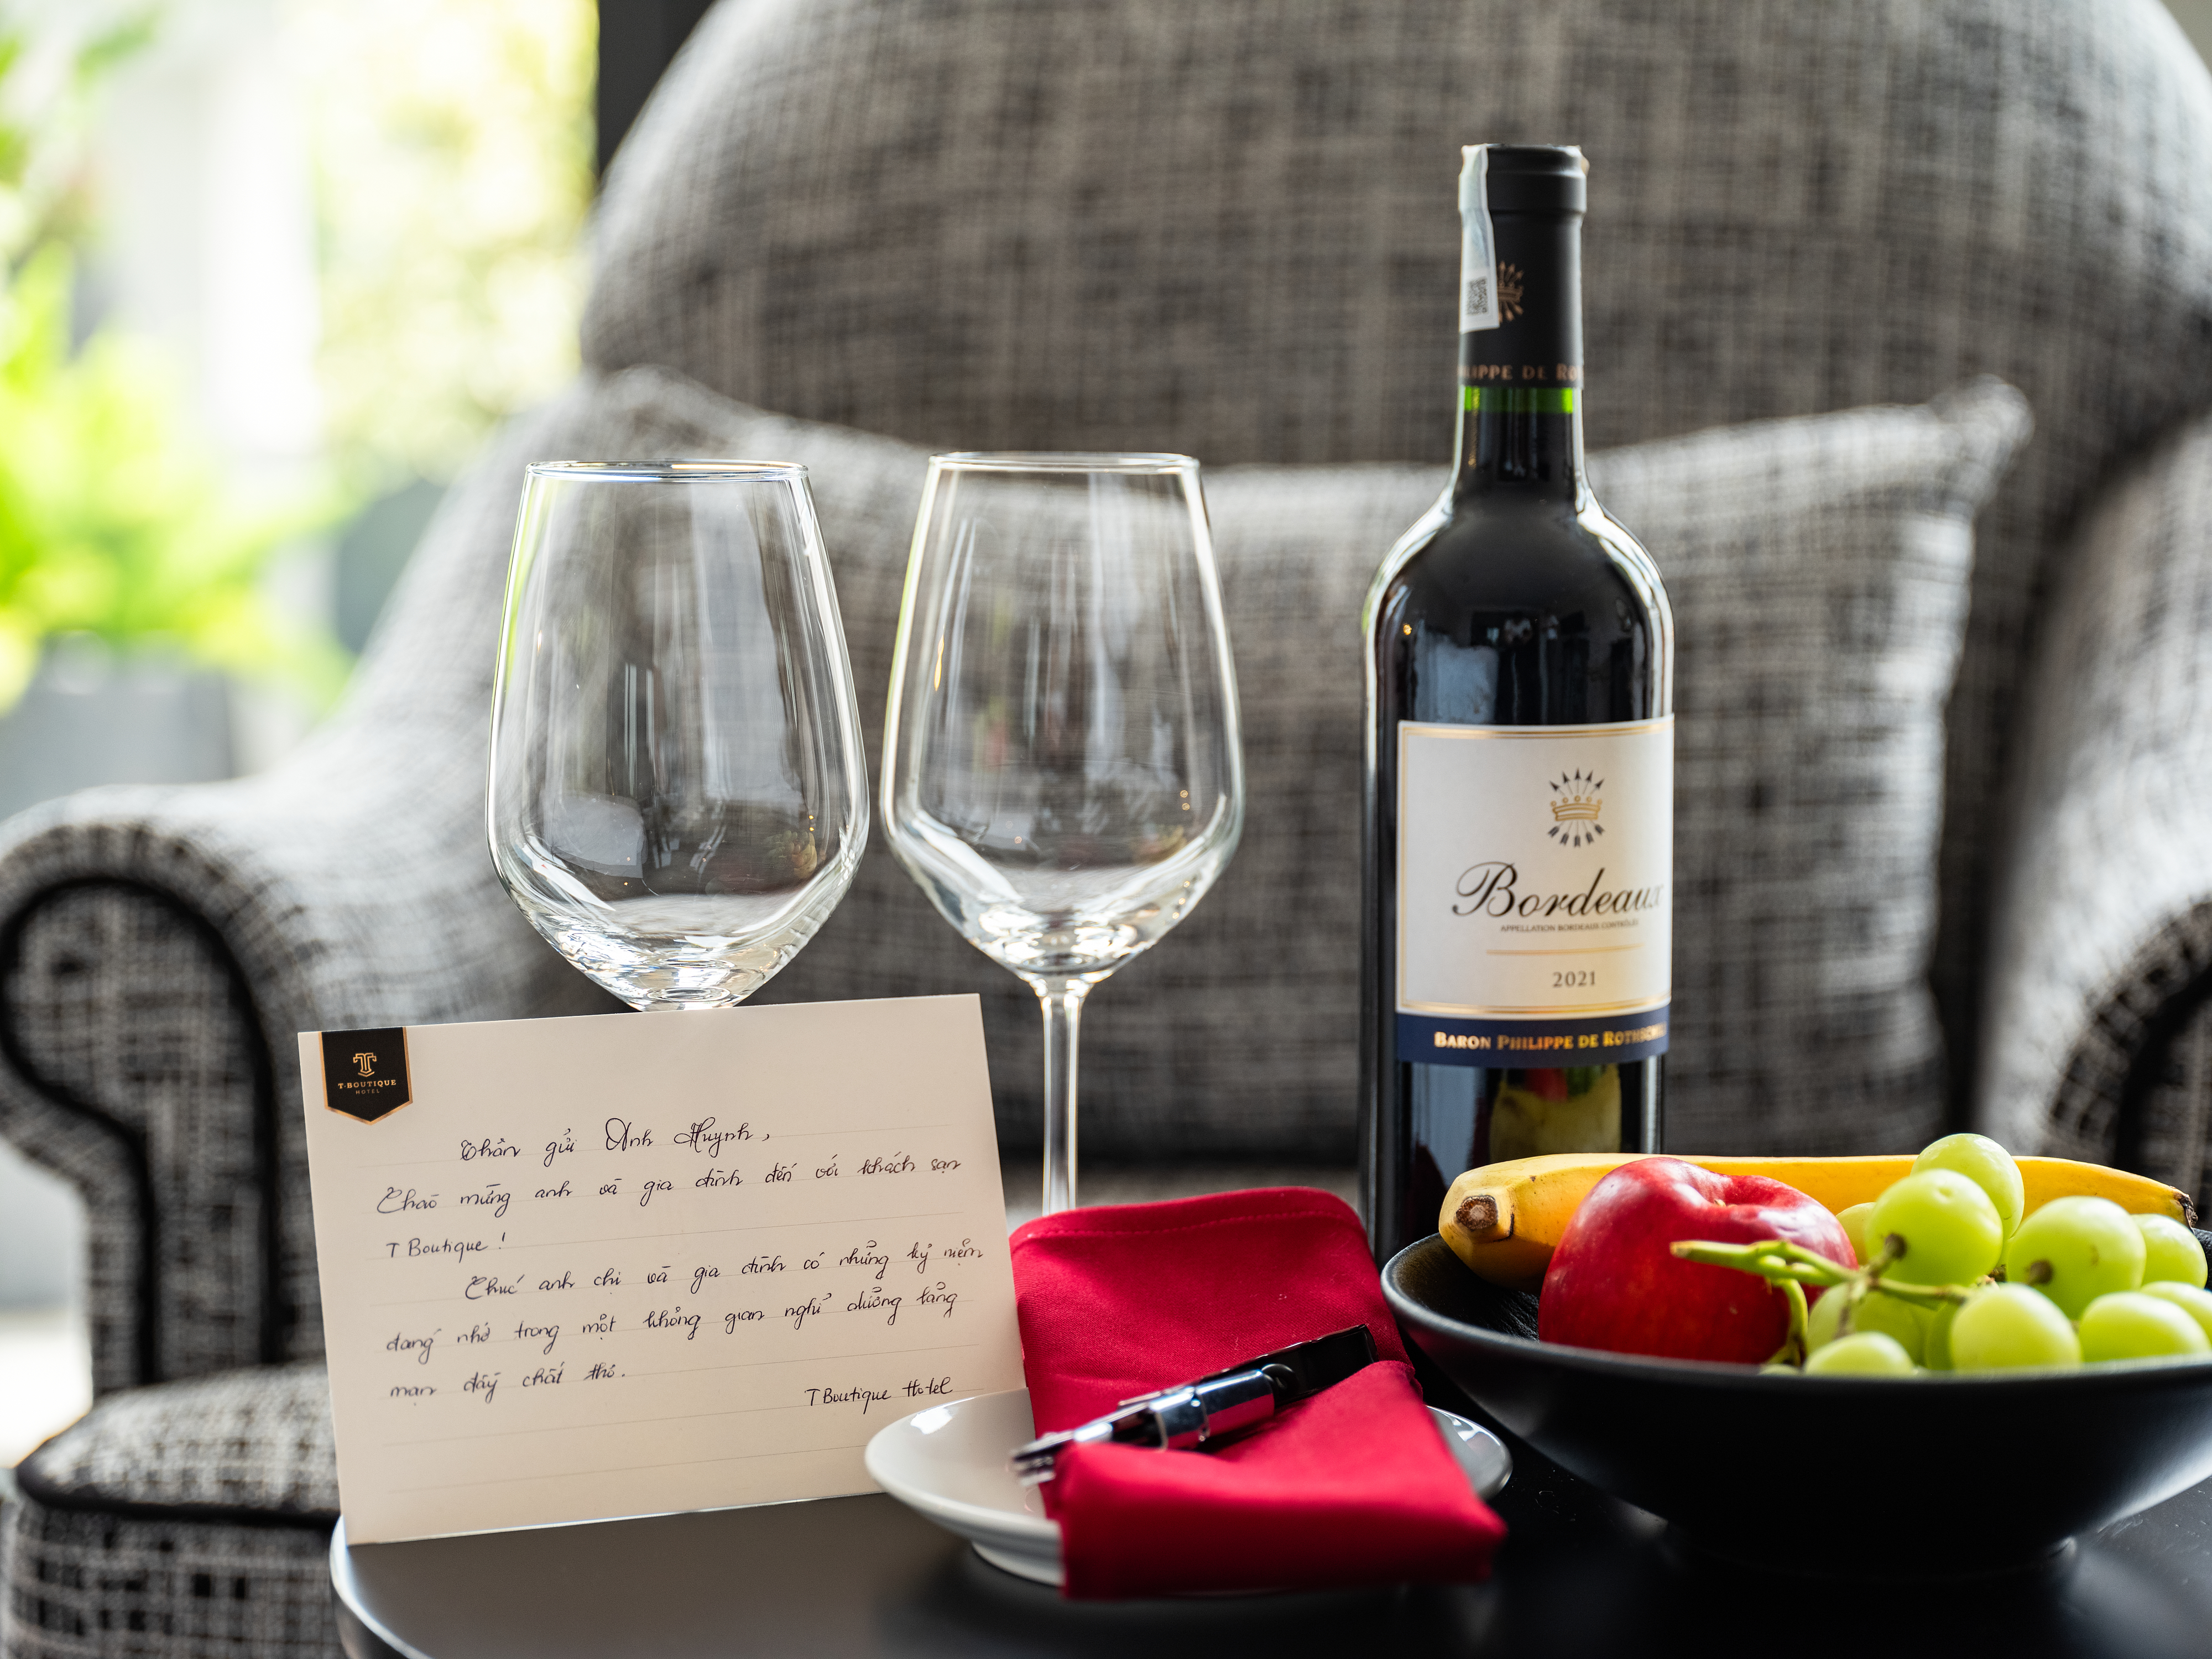 LIPPE DE RO
Bordeaux
APPELLATION BORDEAUX CONTRÔLÉE
2021
BARON PHILIPPE DE ROTHSCHILD
T-BOUTIQUE
HOTEL
Thân gửi Anh Huynh,
Chào mừng anh và gia đình đến với khách sạn
T Boutique !
Chúc anh chị và gia đình có những kỷ niệm
đáng nhớ trong một không gian nghỉ dưỡng lãng
mạn đầy chất thơ.
T Boutique Hotel